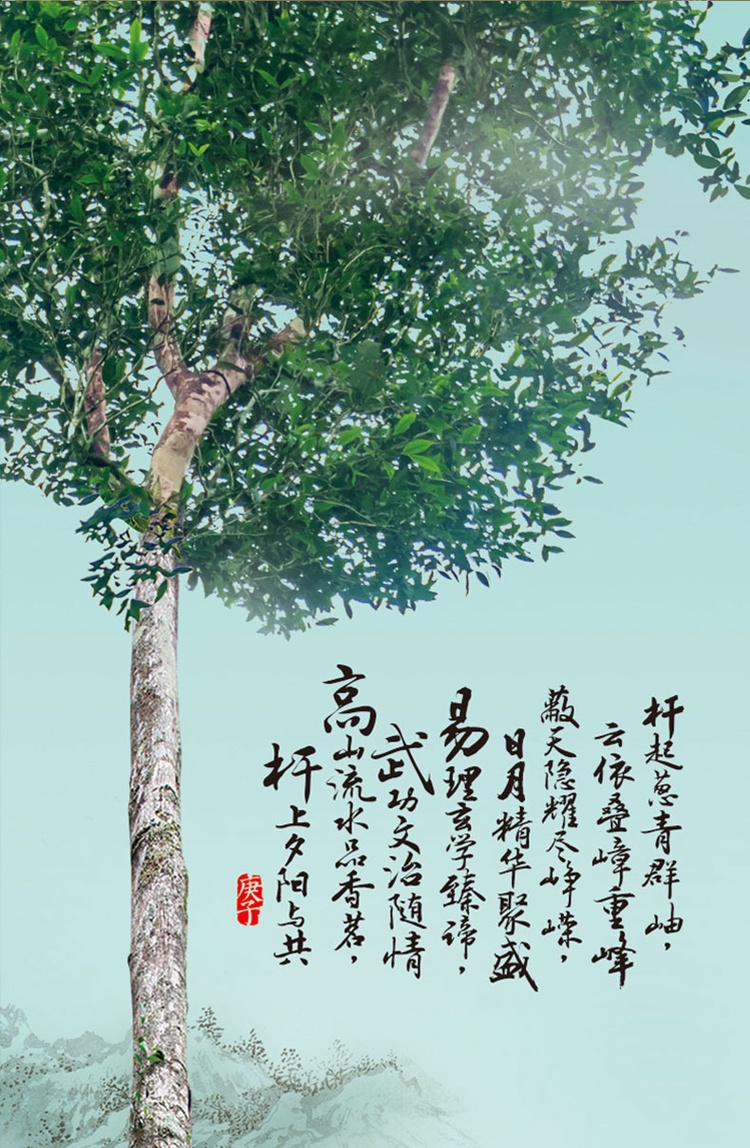 杆起葱青群岫，
云依叠嶂重峰
蔽天隐耀尽峥嵘，
日月精华聚盛
易理玄学臻谛，
武功文治随情
高山流水品香茗，
杆上夕阳与共
庚子